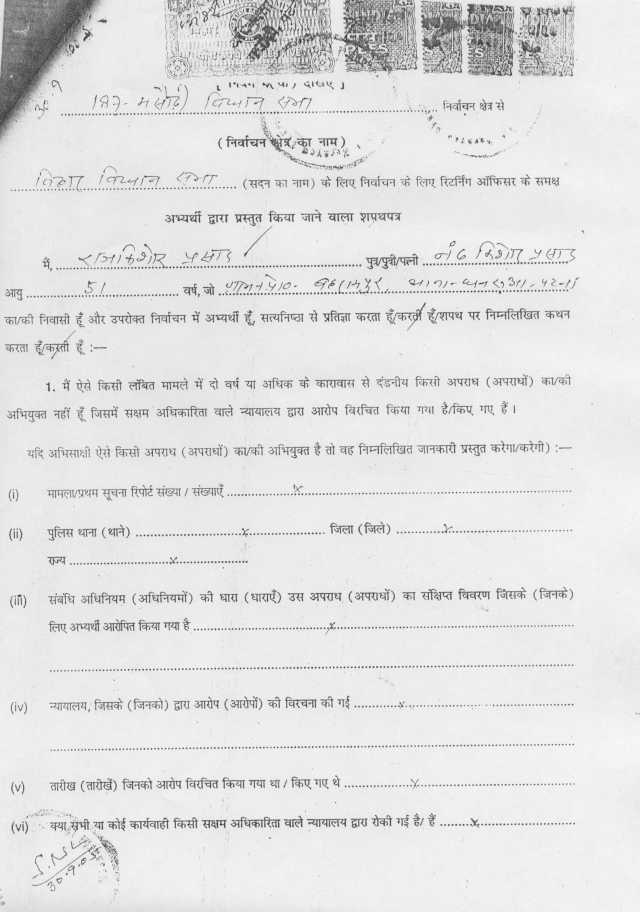 30.9
[ नियम 4क देखिए ]
187- मसौढ़ी विधान सभा निर्वाचन क्षेत्र से
(निर्वाचन क्षेत्र का नाम)
बिहार विधान सभा (सदन का नाम) के लिए निर्वाचन के लिए रिटर्निंग ऑफिसर के समक्ष
अभ्यर्थी द्वारा प्रस्तुत किया जाने वाला शपथपत्र
मैं, राजकिशोर प्रसाद पुत्र/पुत्री/पत्नी नंद किशोर प्रसाद
आयु 51 वर्ष, जो ग्राम+पो०-
का/की निवासी हूँ और उपरोक्त निर्वाचन में अभ्यर्थी हूँ, सत्यनिष्ठा से प्रतिज्ञा करता हूँ/करती हूँ/शपथ पर निम्नलिखित कथन
करता हूँ/करती हूँ :—
1. मैं ऐसे किसी लंबित मामले में दो वर्ष या अधिक के कारावास से दंडनीय किसी अपराध (अपराधों) का/की
अभियुक्त नहीं हूँ जिसमें सक्षम अधिकारिता वाले न्यायालय द्वारा आरोप विरचित किया गया है/किए गए हैं ।
यदि अभिसाक्षी ऐसे किसी अपराध (अपराधों) का/की अभियुक्त है तो वह निम्नलिखित जानकारी प्रस्तुत करेगा/करेगी) :—
(i) मामला/प्रथम सूचना रिपोर्ट संख्या / संख्याएँ x
(ii) पुलिस थाना (थाने) x जिला (जिले) x
राज्य x
(iii) संबंधि अधिनियम (अधिनियमों) की धारा (धाराएँ) उस अपराध (अपराधों) का संक्षिप्त विवरण जिसके (जिनके)
लिए अभ्यर्थी आरोपित किया गया है x
(iv) न्यायालय, जिसके (जिनको) द्वारा आरोप (आरोपों) की विरचना की गई x
(v) तारीख (तारीखें) जिनको आरोप विरचित किया गया था / किए गए थे x
(vi) क्या सभी या कोई कार्यवाही किसी सक्षम अधिकारिता वाले न्यायालय द्वारा रोकी गई है/ हैं x
30.9.05